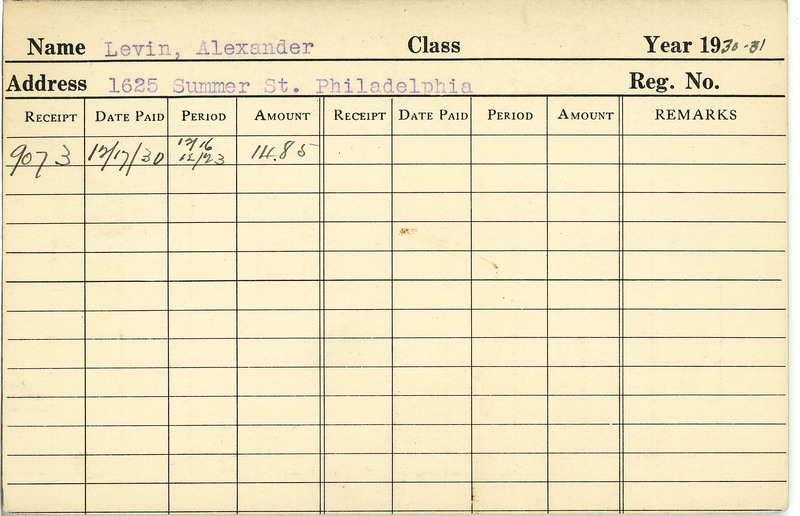 Name Levin, Alexander Class Year 1930-31
Address 1625 Summer St. Philadelphia Reg. No.
RECEIPT DATE PAID PERIOD AMOUNT RECEIPT DATE PAID PERIOD AMOUNT REMARKS
9073 12/17/30 12/16 12/23 14.85